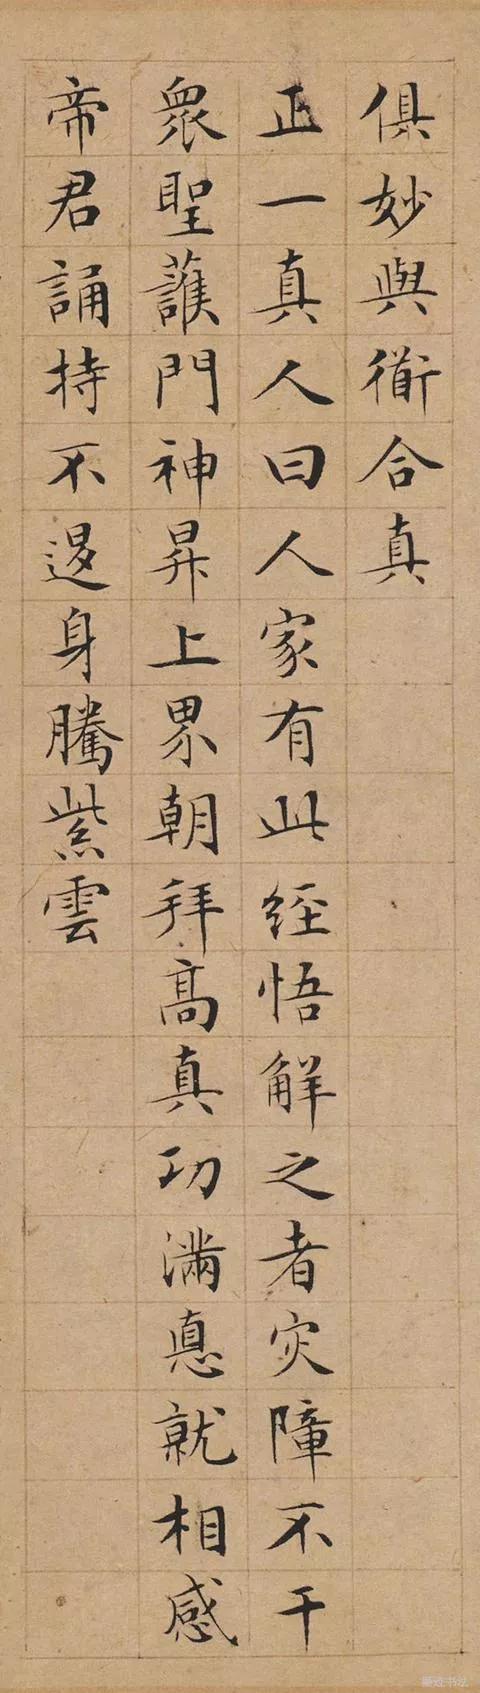 俱妙與衜合真
正一真人曰人家有此經悟解之者灾障不干
衆聖護門神昇上界朝拜高真功滿悳就相感
帝君誦持不退身騰紫雲
墨迹书法